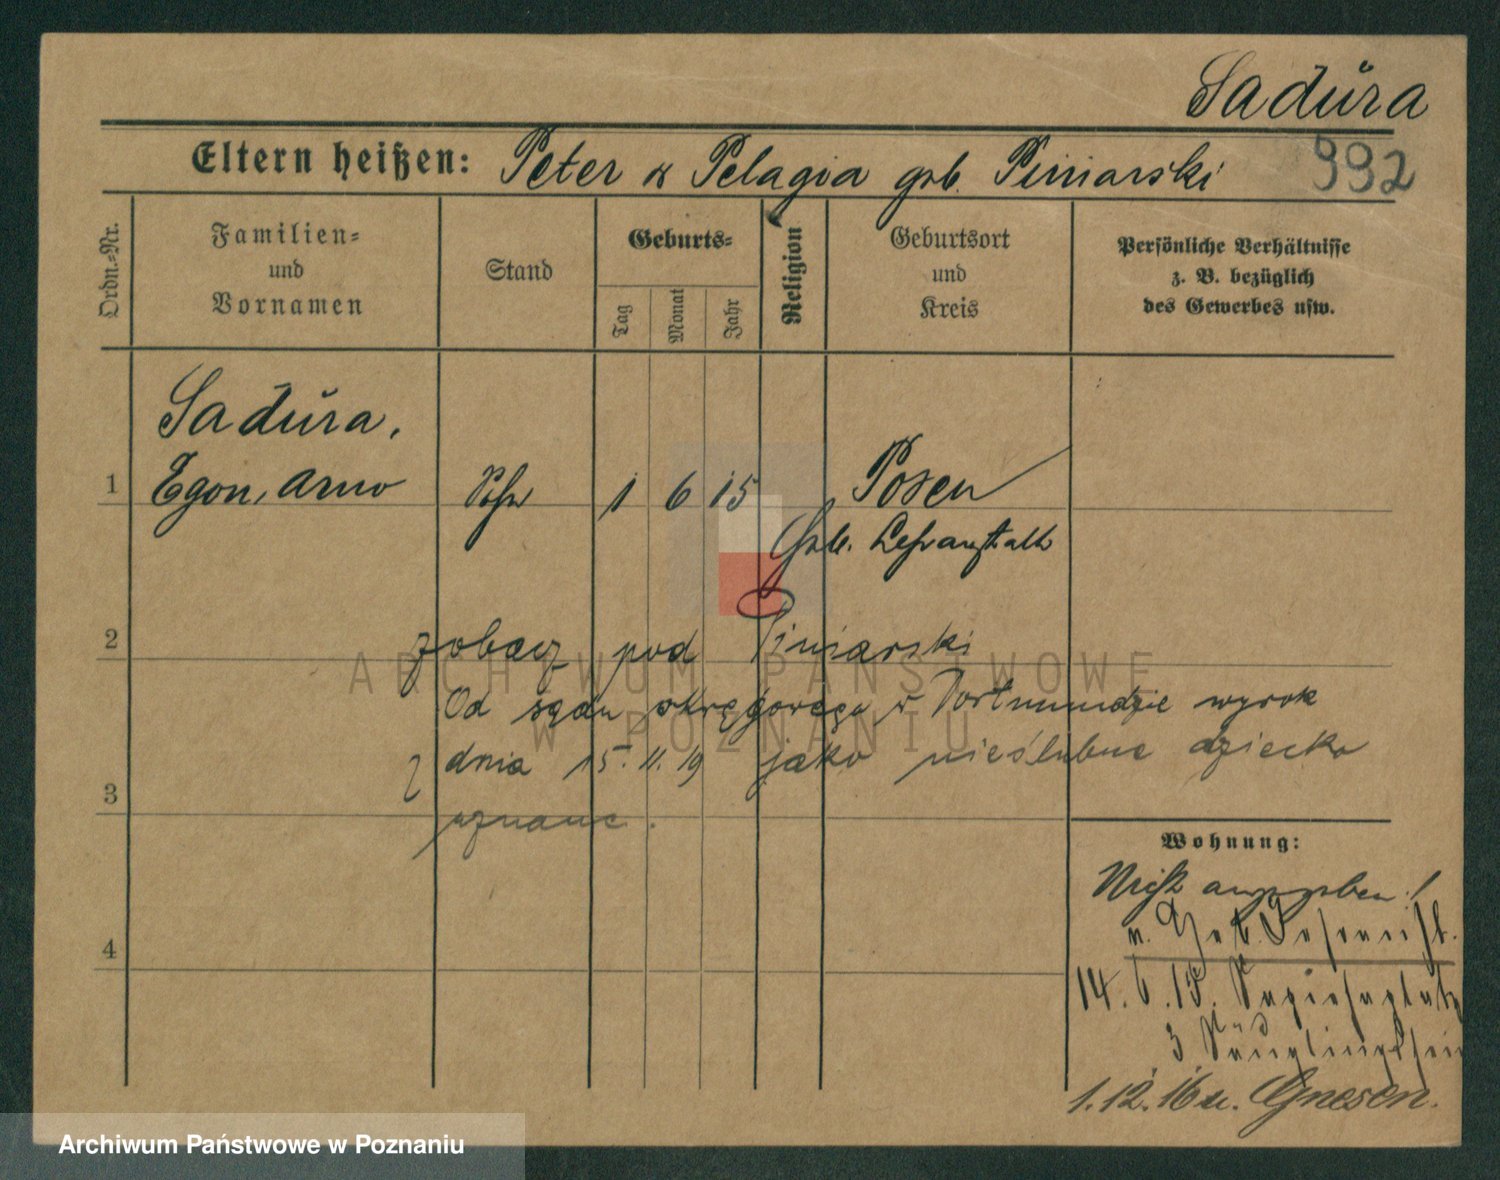 Sadŭra
Eltern heißen: Peter & Pelagia geb. Piniarski
992
Ordn.-Nr.
Familien-
und
Vornamen
Stand
Geburts-
Tag
Monat
Jahr
Religion
Geburtsort
und
Kreis
Persönliche Verhältnisse
z. B. bezüglich
des Gewerbes usw.
Sadŭra,
1 Egon, Arno Sohn 1 6 15 Posen
Geb. Lehranstalt
2 zobacz pod Piniarski
Od sądu okręgowego w Dortmundzie wyrok
z dnia 15. 11. 19 jako nieślubne dziecko
3
uznane.
Wohnung:
Nicht angegeben!
4
14. 6. 15.
3 Säuglingsheim
1. 12. 16 n. Gnesen.
ARCHIWUM PAŃSTWOWE
W POZNANIU
Archiwum Państwowe w Poznaniu